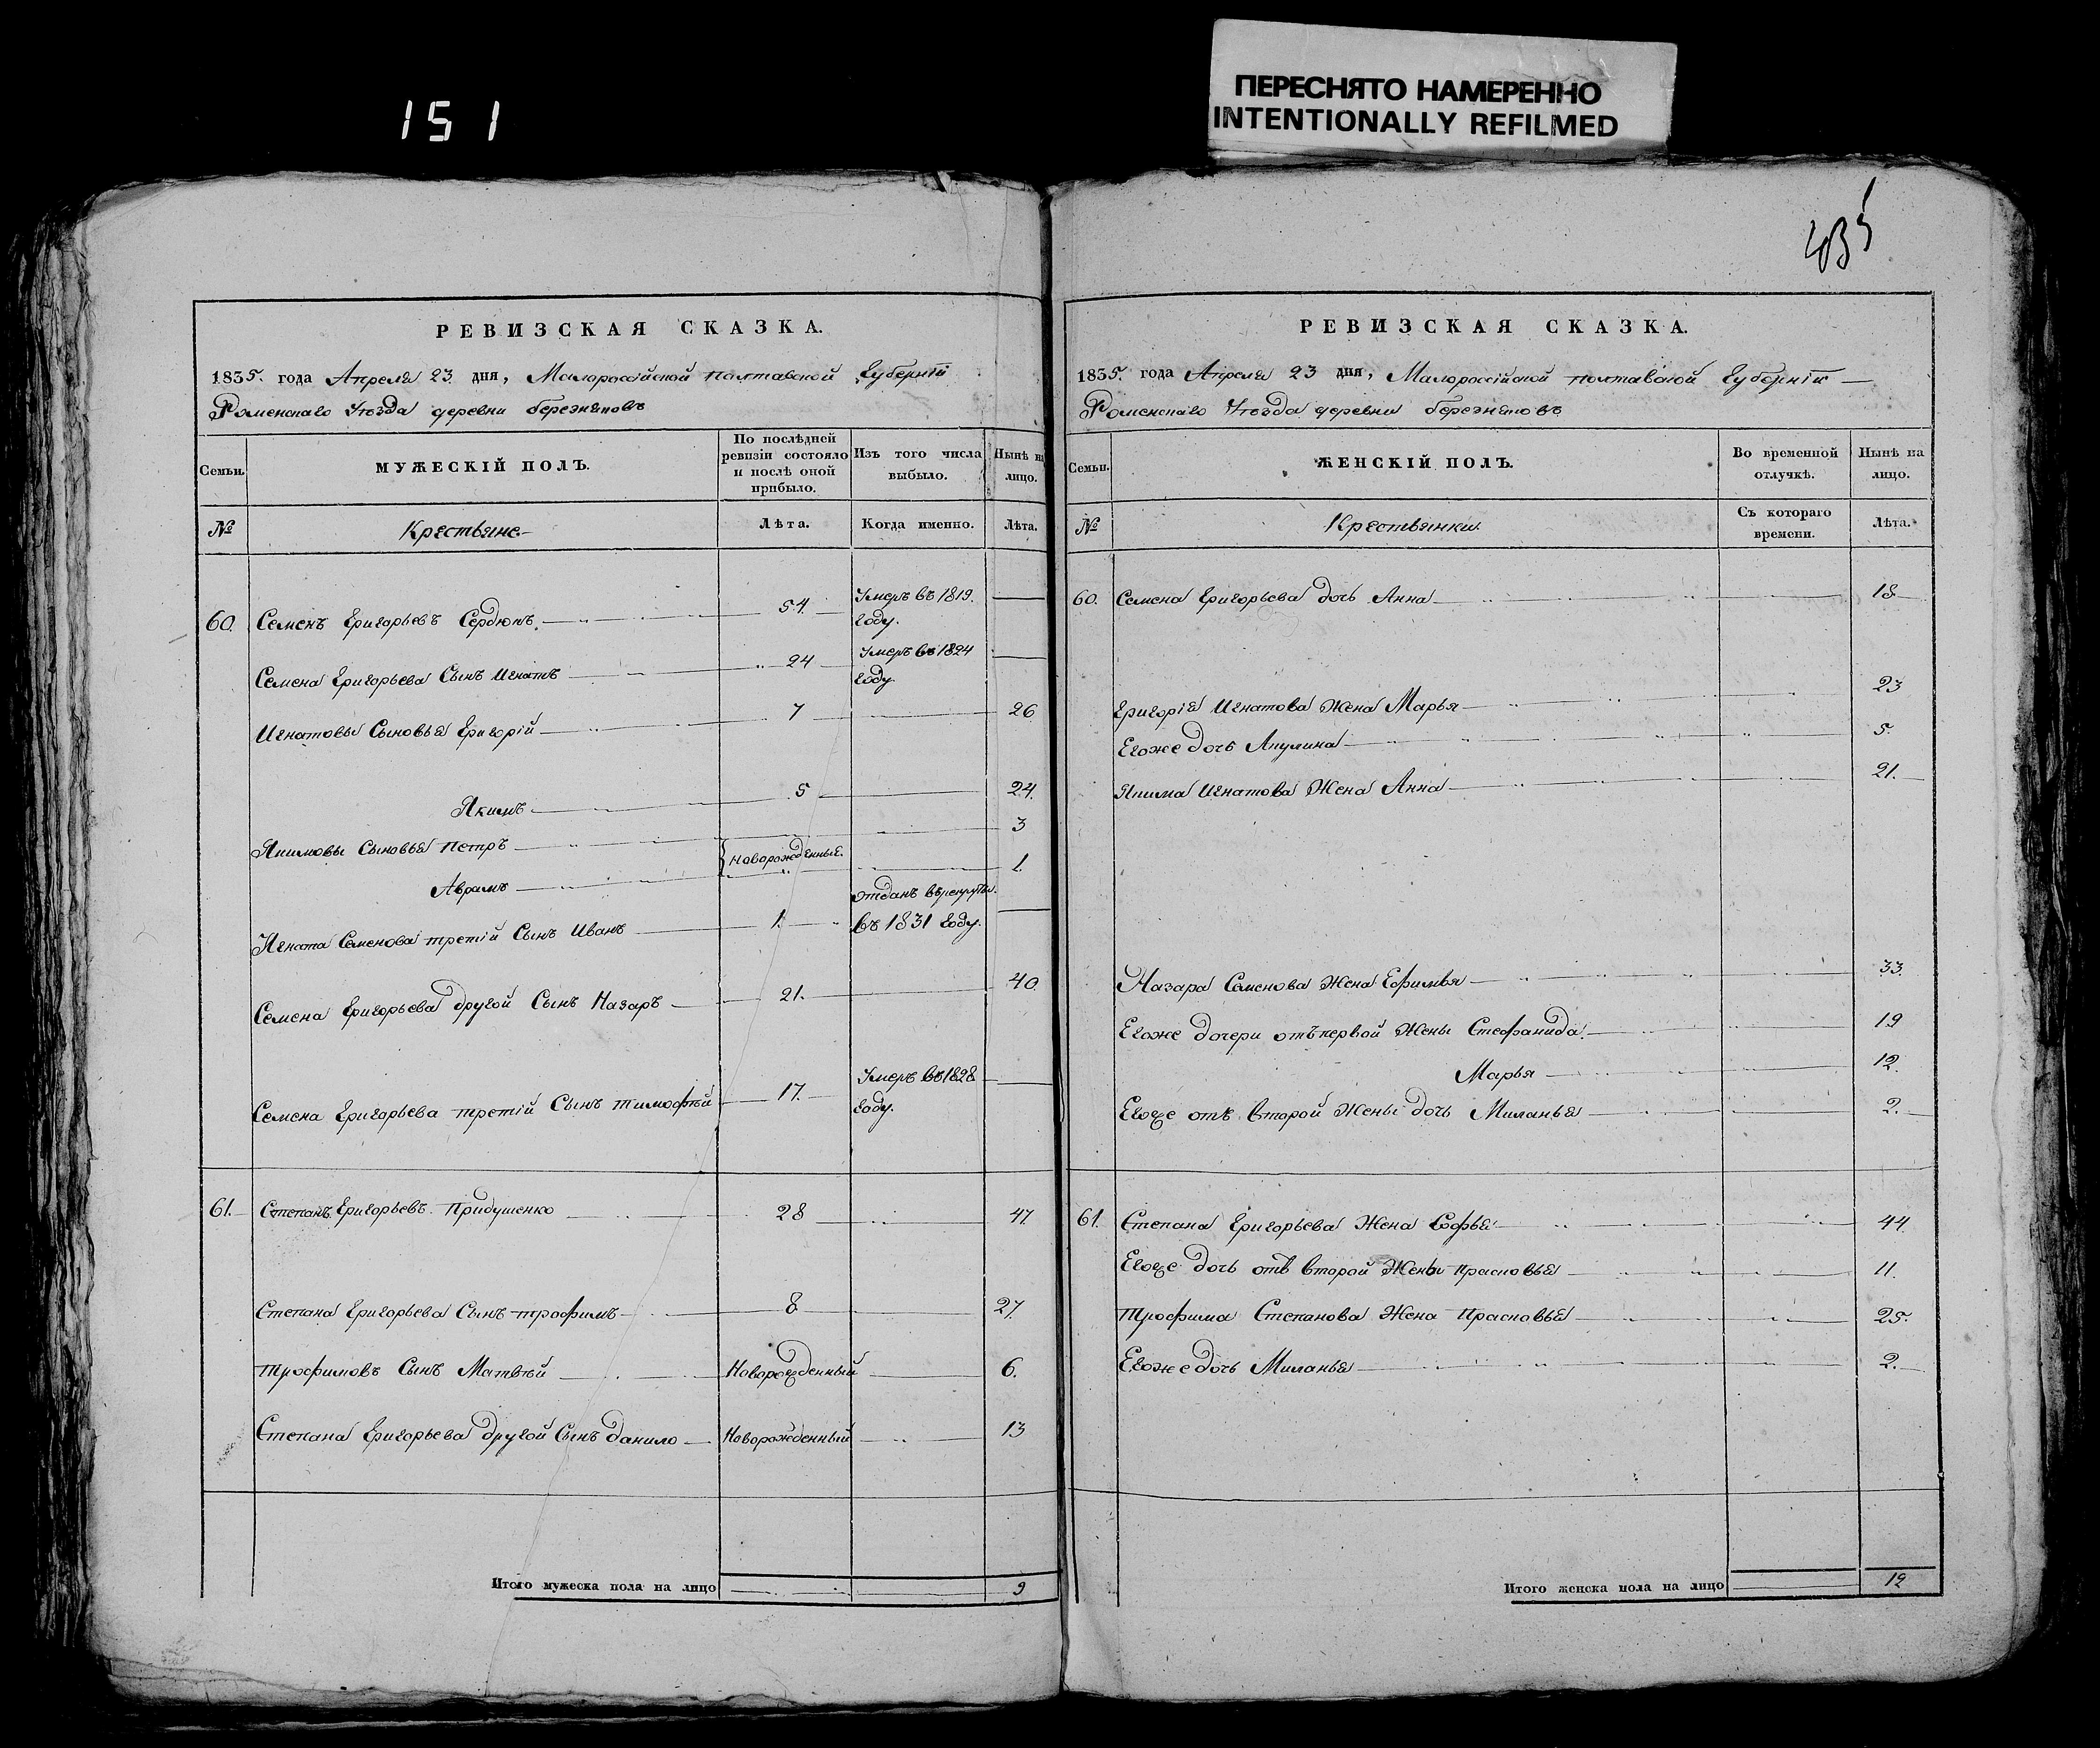 151
ПЕРЕСНЯТО НАМЕРЕННО
INTENTIONALLY REFILMED
435
РЕВИЗСКАЯ СКАЗКА.
1835. года Апреля 23 дня, Малороссійской Полтавской Губерніи
Роменскаго Уезда деревни Березняковъ
Семьи.
МУЖЕСКІЙ ПОЛЪ.
По послѣдней ревизіи состояло и послѣ оной прибыло.
Изъ того числа выбыло.
Нынѣ на лицо.
№
Крестьяне
Лѣта.
Когда именно.
Лѣта.
60. Семенъ Григорьевъ Сердюкъ 54 Умеръ въ 1819. году.
Семена Григорьева Сынъ Игнатъ 24 Умеръ въ 1824 году.
Игнатовы Сыновья Григорій 7 26
Якимъ 5 24.
Якимовы Сыновья Петръ Новорожденные. 3
Аврамъ 1.
Игната Семенова третій Сынъ Иванъ 1. отданъ въ рекруты. въ 1831 году.
Семена Григорьева другой Сынъ Назаръ 21. 40
Семена Григорьева третій Сынъ Тимофѣй 17. Умеръ въ 1828 году.
61. Степанъ Григорьевъ Придушенко 28 47
Степана Григорьева Сынъ Трофимъ 8 27.
Трофимовъ Сынъ Матвѣй Новорожденный 6.
Степана Григорьева другой Сынъ Данило Новорожденный 13
Итого мужеска пола на лицо 9
РЕВИЗСКАЯ СКАЗКА.
1835. года Апреля 23 дня, Малороссійской Полтавской Губерніи
Роменскаго Уезда деревни Березняковъ
Семьи.
ЖЕНСКІЙ ПОЛЪ.
Во временной отлучкѣ.
Нынѣ на лицо.
№
Крестьянки.
Съ котораго времени.
Лѣта.
60. Семена Григорьева дочь Анна 18
Григорія Игнатова Жена Марья 23
Егоже дочь Акулина 5.
Якима Игнатова Жена Анна 21.
Назара Семенова Жена Ефимья 33.
Егоже дочери отъ первой Жены Стефанида. 19
Марья 12.
Егоже отъ второй Жены дочь Миланья 2.
61. Степана Григорьева Жена Софья 44.
Егоже дочь отъ второй Жены Прасковья 11.
Трофима Степанова Жена Прасковья 25.
Егоже дочь Миланья 2.
Итого женска пола на лицо 12